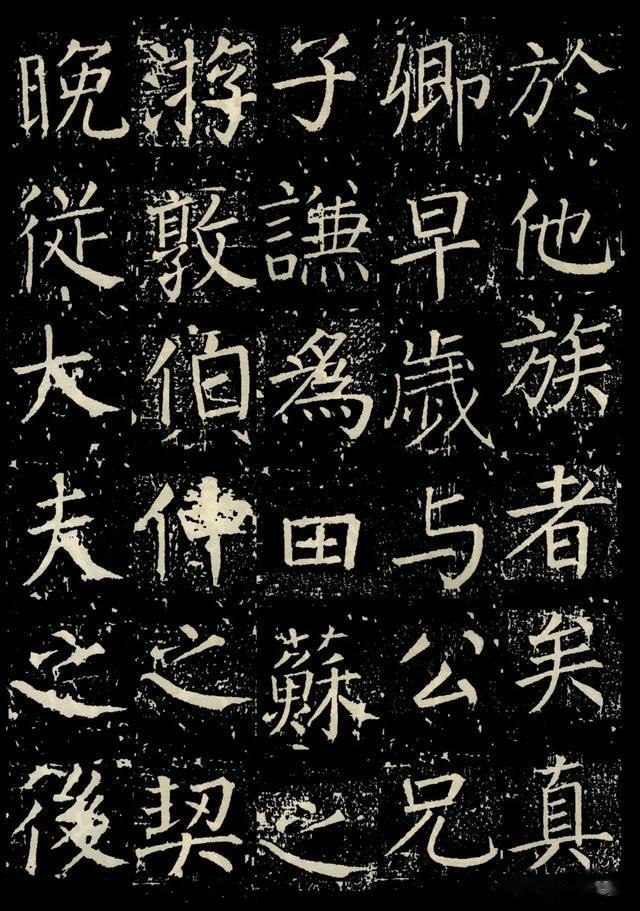 於他族者矣真
卿早歲与公兄
子謙為田蘇之
游敦伯仲之契
晚從大夫之後